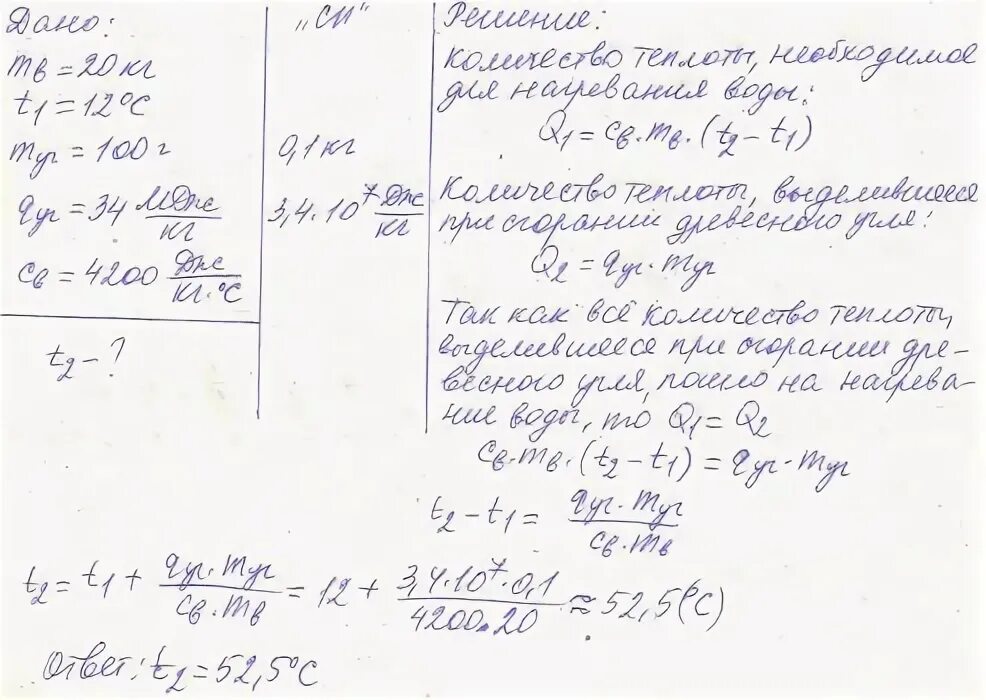 Дано:
mв = 20 кг
t1 = 12°C
mуг = 100 г
qуг = 34 МДж/кг
cв = 4200 Дж/кг·°C
t2 - ?
„СИ"
0,1 кг
3,4·10^7 Дж/кг
Решение:
Количество теплоты, необходимое
для нагревания воды:
Q1 = cв·mв·(t2 - t1)
Количество теплоты, выделившееся
при сгорании древесного угля:
Q2 = qуг·mуг
Так как всё количество теплоты,
выделившееся при сгорании дре-
весного угля, пошло на нагрева-
ние воды, то Q1 = Q2
cв·mв·(t2 - t1) = qуг·mуг
t2 - t1 = qуг·mуг/cв·mв
t2 = t1 + qуг·mуг/cв·mв = 12 + 3,4·10^7·0,1/4200·20 ≈ 52,5(°C)
Ответ: t2 = 52,5°C